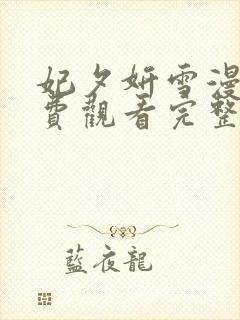 妃夕妍雪漫
費觀看完整
藍夜龍